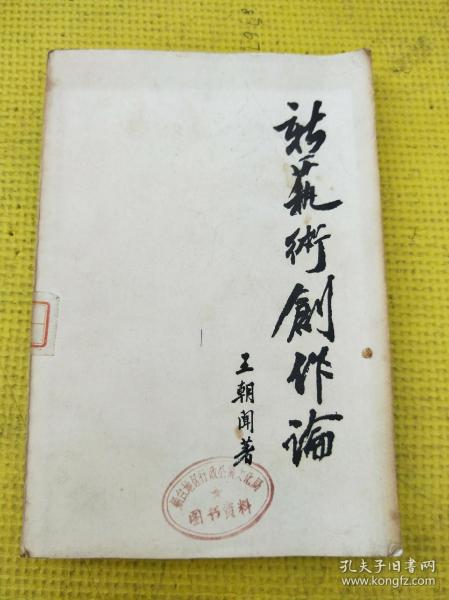 新藝術創作論
王朝聞著
图书资料
孔夫子旧书网
www.kongfz.com